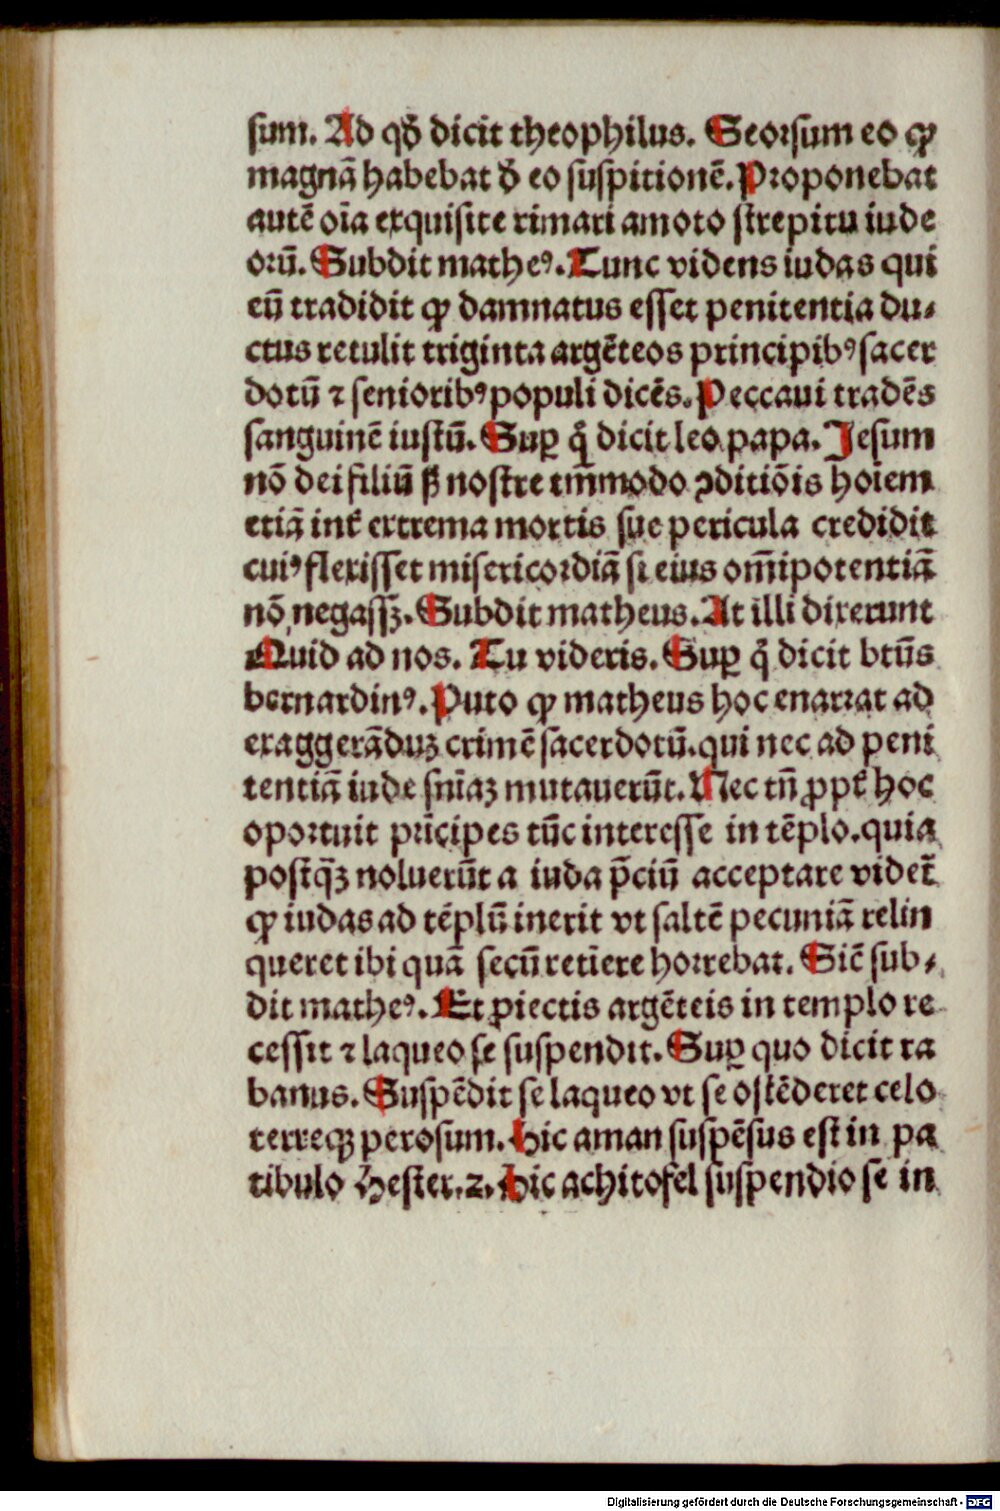 sum. Ad qđ dicit theophilus. Seorsum eo ꝙ
magnā habebat đ eo suspitionē. Proponebat
autē oīa exquisite rimari amoto strepitu iude
orū. Subdit matheꝰ. Tunc videns iudas qui
eū tradidit ꝙ damnatus esset penitentia du-
ctus retulit triginta argēteos principibꝰ sacer
dotū ⁊ senioribꝰ populi dicēs. Peccaui tradēs
sanguinē iustū. Suꝑ q̄ dicit leo papa. Jesum
nō dei filiū ẞ nostre tm̄modo ꝯditiōis hoiem
etiā int̄ extrema mortis sue pericula credidit
cuiꝰ flexisset misericordiā si eius om̄ipotentiā
nō negassꝫ. Subdit matheus. At illi dixerunt
Quid ad nos. Tu videris. Suꝑ q̄ dicit btūs
bernardinꝰ. Puto ꝙ matheus hoc enarrat ad
exaggerāduꝫ crimē sacerdotū. qui nec ad peni
tentiā iude sn̄iaꝫ mutauerūt. Nec tn̄ ꝓpt̄ hoc
oportuit prīcipes tūc interesse in tēplo. quia
postq̄ꝫ noluerūt a iuda p̄ciū acceptare videt̄
ꝙ iudas ad tēplū inerit vt saltē pecuniā relin
queret ibi quā secū retīere horrebat. Siē sub-
dit matheꝰ. Et ꝓiectis argēteis in templo re
cessit ⁊ laqueo se suspendit. Suꝑ quo dicit ra
banus. Suspēdit se laqueo vt se ostēderet celo
terreqꝫ perosum. Hic aman suspēsus est in pa
tibulo Hester. 2. Hic achitofel suspendio se in
Digitalisierung gefördert durch die Deutsche Forschungsgemeinschaft - DFG